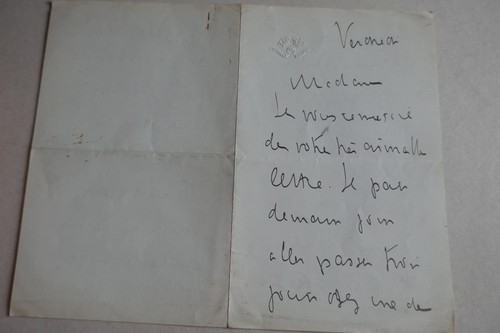 Vendredi
Madame
Je vous remercie
de votre très aimable
lettre. Je pars
demain pour
aller passer trois
jours chez une de